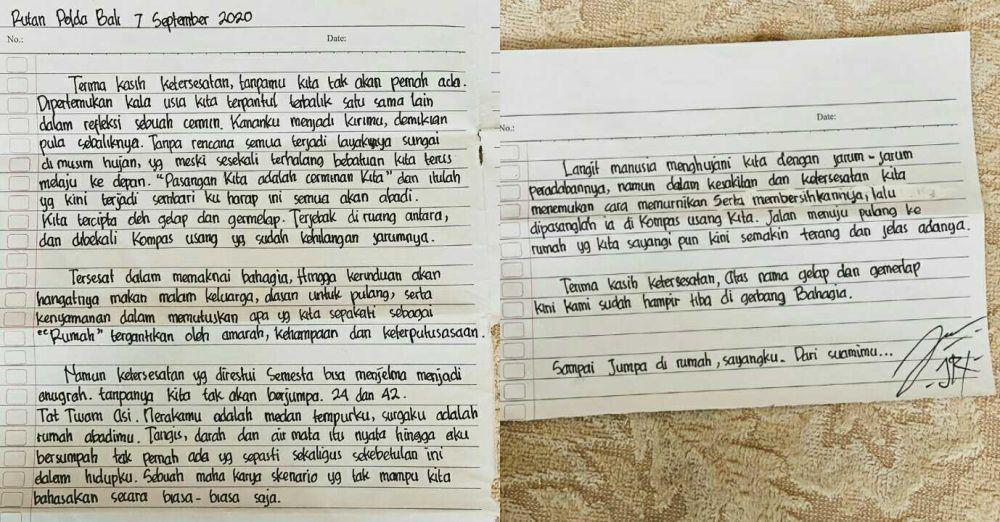 Rutan Polda Bali 7 September 2020
No.: Date:
Terima kasih ketersesatan, tanpamu kita tak akan pernah ada.
Dipertemukan kala usia kita terpantul terbalik satu sama lain
dalam refleksi sebuah cermin. Kananku menjadi kirimu, demikian
pula sebaliknya. Tanpa rencana semua terjadi layaknya sungai
di musim hujan, yg meski sesekali terhalang bebatuan kita terus
melaju ke depan. "Pasangan Kita adalah cerminan Kita" dan itulah
yg kini terjadi sembari ku harap ini semua akan abadi.
Kita tercipta oleh gelap dan germelap. Terjebak di ruang antara,
dan dibekali Kompas usang yg sudah kehilangan jarumnya.
Tersesat dalam memaknai bahagia, Hingga kerinduan akan
hangatnya makan malam keluarga, alasan untuk pulang, serta
kenyamanan dalam memutuskan apa yg kita sepakati sebagai
""Rumah" tergantikan oleh amarah, kehampaan dan keterputusasaan.
Namun ketersesatan yg direstui Semesta bisa menjelma menjadi
anugrah. tanpanya kita tak akan berjumpa. 24 dan 42.
Tat Twam Asi. Nerakamu adalah medan tempurku, surgaku adalah
rumah abadimu. Tangis, darah dan air mata itu nyata hingga aku
bersumpah tak pernah ada yg sepasti sekaligus sekebetulan ini
dalam hidupku. Sebuah maha karya skenario yg tak mampu kita
bahasakan secara biasa-biasa saja.
No.: Date:
Langit manusia menghujani kita dengan jarum-jarum
peradabannya, namun dalam kesakilan dan ketersesatan kita
menemukan cara memurnikan serta membersihkannya, lalu
dipasanglah ia di Kompas usang Kita. Jalan menuju pulang ke
rumah yg kita sayangi pun kini semakin terang dan jelas adanya.
Terima kasih ketersesatan, Atas nama gelap dan gemerlap
kini kami sudah hampir tiba di gerbang Bahagia.
Sampai Jumpa di rumah, sayangku. Dari suamimu...
JRX